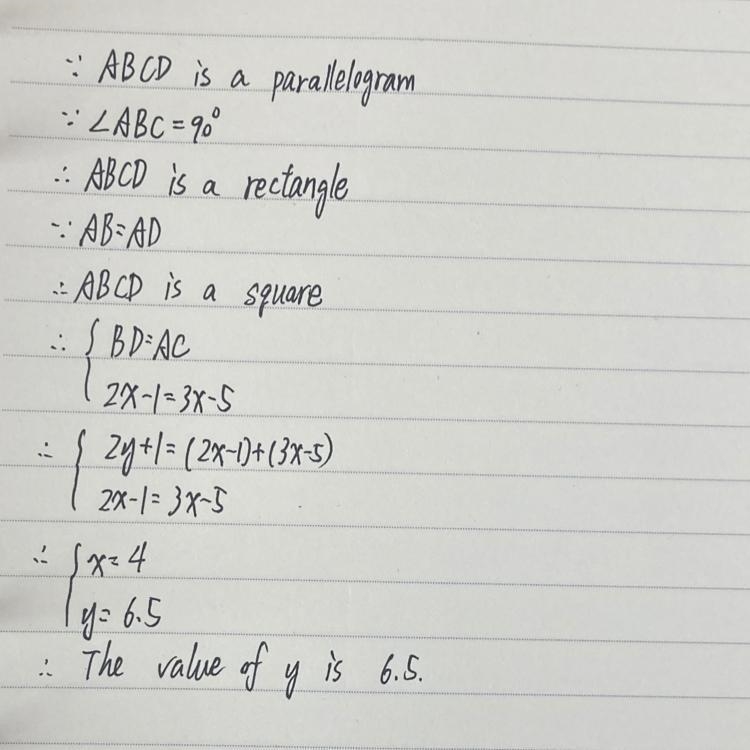 ∵ ABCD is a parallelogram
∵ ∠ABC=90°
∴ ABCD is a rectangle
∵ AB=AD
∴ ABCD is a square
∴ { BD=AC
2x-1=3x-5
∴ { 2y+1=(2x-1)+(3x-5)
2x-1=3x-5
∴ { x=4
y=6.5
∴ The value of y is 6.5.